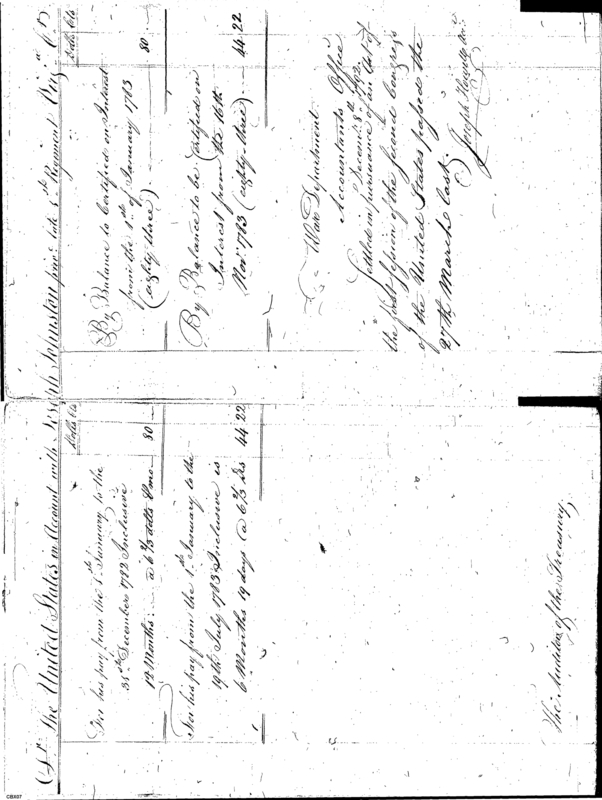 Dr. The United States in Account with Joseph Johnston priv.t late 5th Regiment Virg.a Cr.
Dolls Cts
For his pay from the 1st January to the
31st December 1782 Inclusive
12 Months a 6 2/3 dolls 80
For his pay from the 1st January to the
19th July 1783 Inclusive is
6 Months 19 days @ 6 2/3 Ds 44 22
The Auditor of the Treasury
Dolls Cts
By Balance to Certified on Interest
from the 1st of January 1783
(eighty three) 80
By Balance to be Certified on
Interest from the 16th
Nov 1783 (eighty three) 44 22
War Department
Accountants Office
Decem 8th 1792
Settled in pursuance of an Act of
the first Session of the second Congress
of the United States passed the
27th March last.
Joseph Howell
CBX07